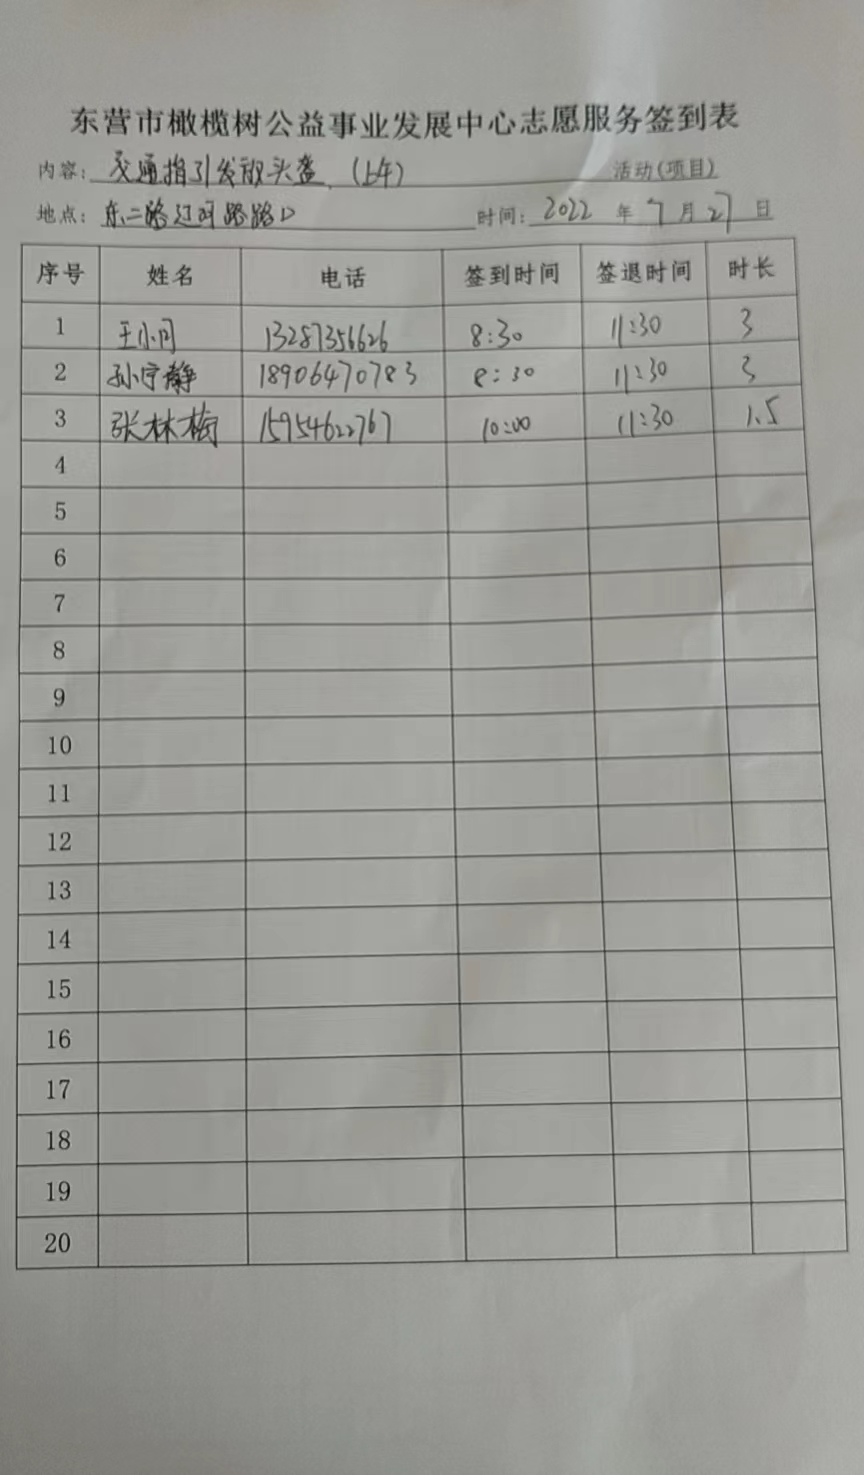 东营市橄榄树公益事业发展中心志愿服务签到表
内容: 交通指引发放头盔 (上午) 活动(项目)
地点: 东二路辽河路路口 时间: 2022 年 7 月 27 日
序号 姓名 电话 签到时间 签退时间 时长
1 王小同 13287356626 8:30 11:30 3
2 孙宁静 18906470783 8:30 11:30 3
3 张林梅 15954622767 10:00 11:30 1.5
4
5
6
7
8
9
10
11
12
13
14
15
16
17
18
19
20